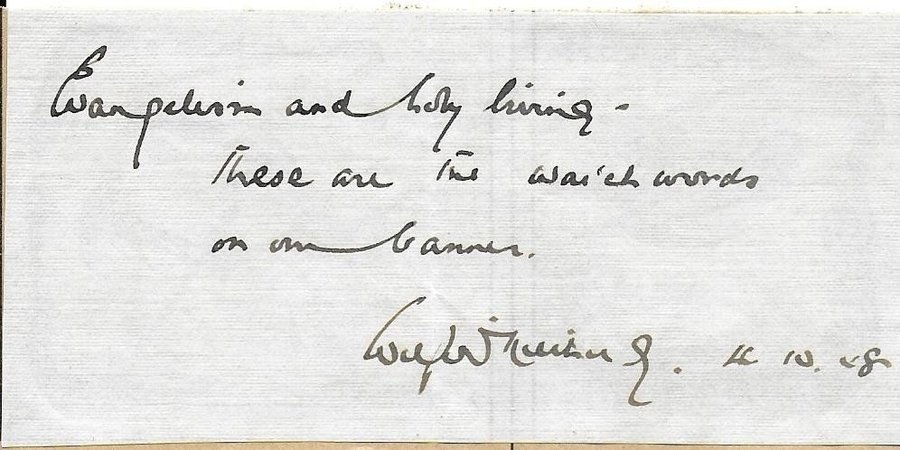 Evangelism and holy living -
these are the watchwords
on our banner.